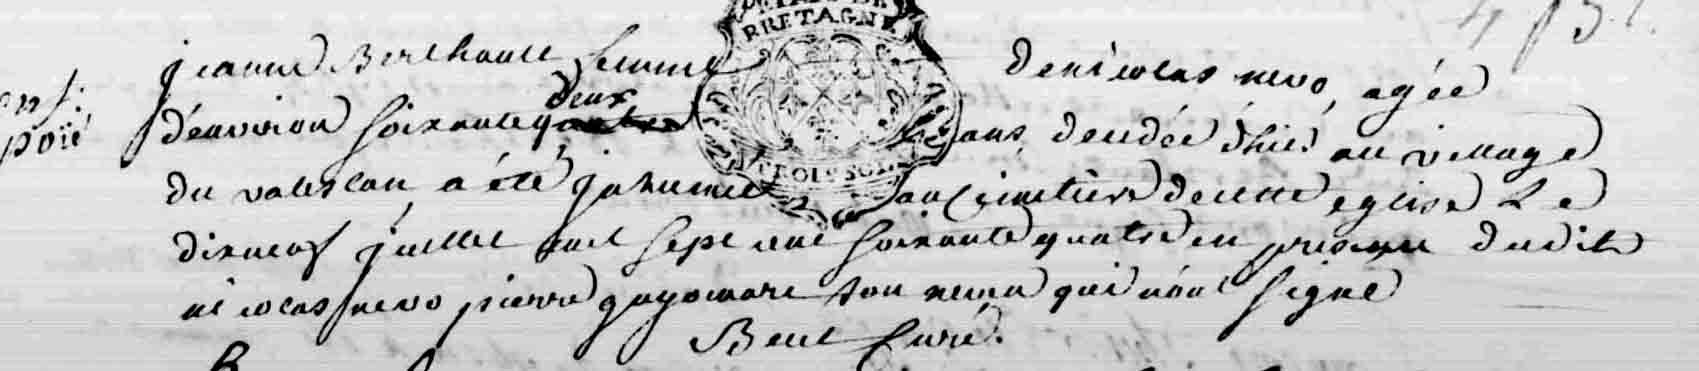 BRETAGNE
jeanne Berthault femme de nicolas nevo, agée
deux
d'environ soixante quatre ans, decedée d'hier au village
du valeslan, a été inhumée au cimetiere de cette eglise Le
dixneuf juillet mil sept cent soixante quatre en presence dudit
nicolas nevo pierre guyomare son neveu qui n'ont signé
curé.